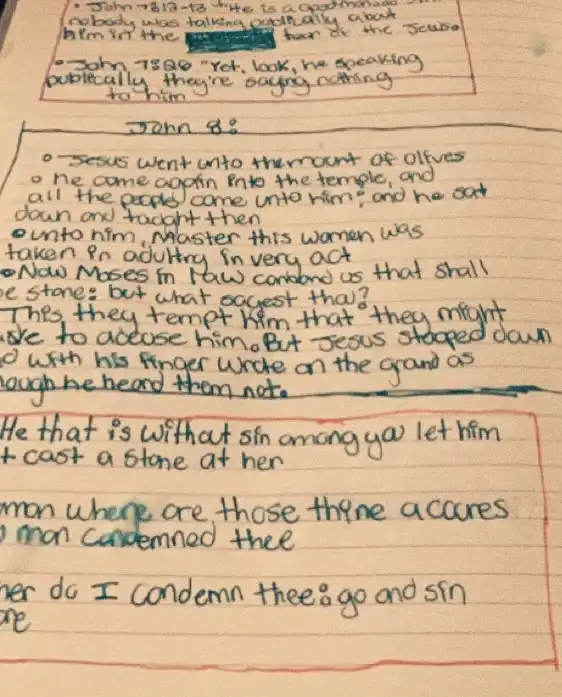 • John 7:812-13 "He is a good man
nobody was talking publically about
him in the fear of the Jewso
• John 7:826 "Yet, look, he speaking
publically they're saying nothing
to him
John 8:
• Jesus went unto the mount of olives
• he came again into the temple, and
all the people came unto him; and he sat
down and taught then
• unto him, Master this women was
taken in adultry in very act
• Now Moses in law command us that shall
be stone: but what sayest thou?
This they tempt him that they might
to accuse him. But Jesus stooped down
with his finger wrote on the ground as
though he heard them not.
He that is without sin among you let him
cast a stone at her
where are those thine accures
man condemned thee
do I condemn thee: go and sin